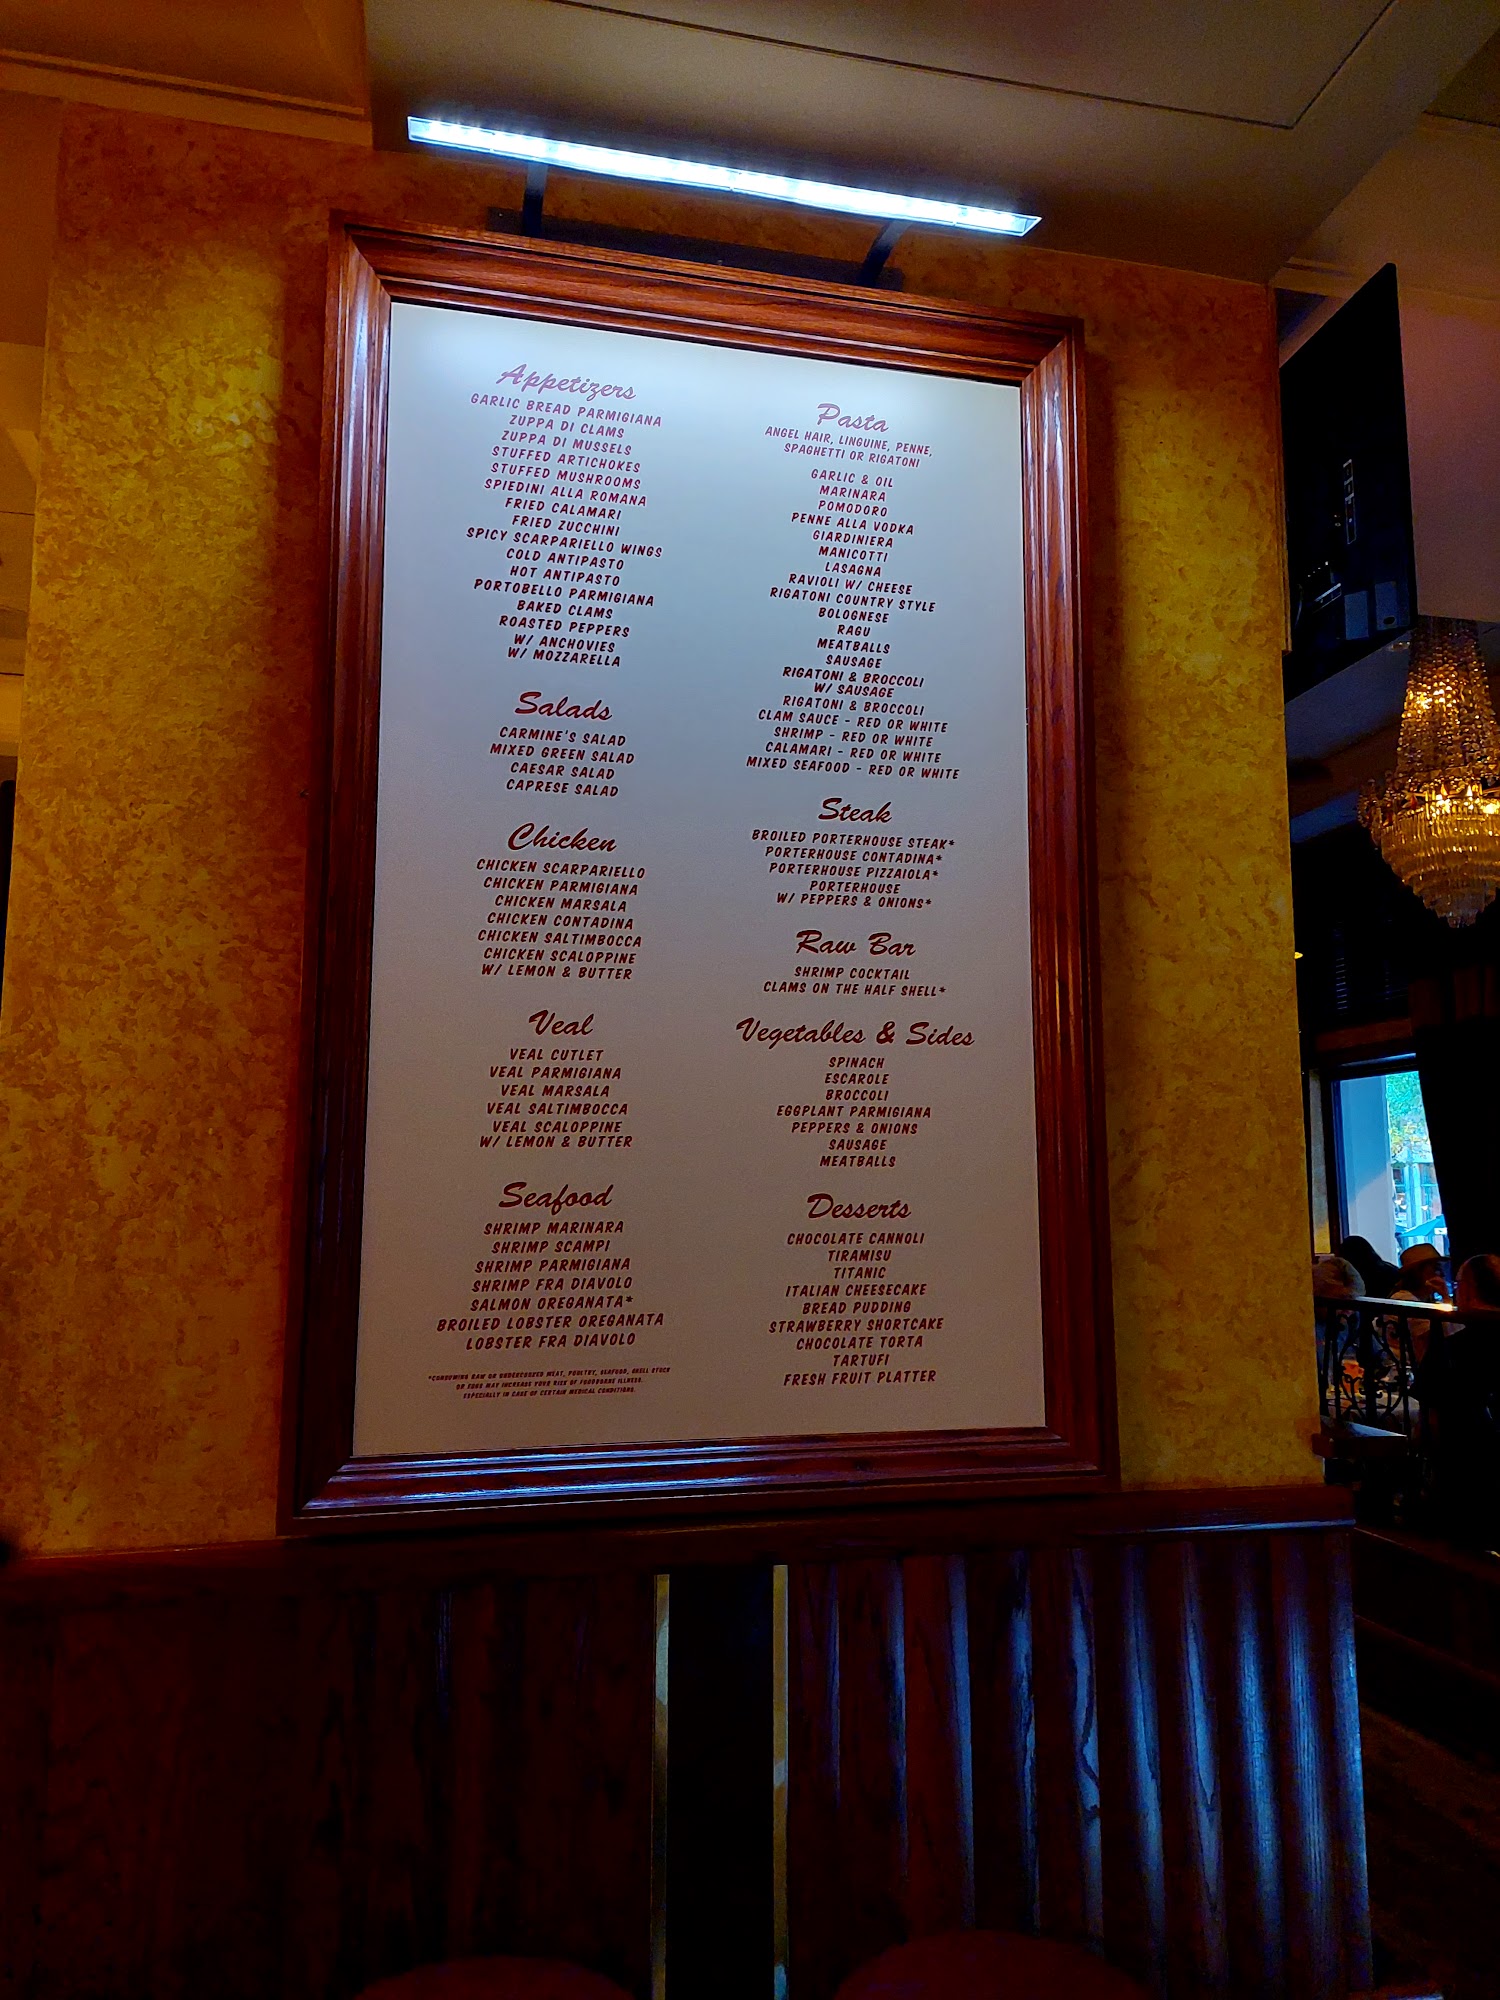 Appetizers
GARLIC BREAD PARMIGIANA
ZUPPA DI CLAMS
ZUPPA DI MUSSELS
STUFFED ARTICHOKES
STUFFED MUSHROOMS
SPIEDINI ALLA ROMANA
FRIED CALAMARI
FRIED ZUCCHINI
SPICY SCARPARIELLO WINGS
COLD ANTIPASTO
HOT ANTIPASTO
PORTOBELLO PARMIGIANA
BAKED CLAMS
ROASTED PEPPERS
W/ ANCHOVIES
W/ MOZZARELLA
Salads
CARMINE'S SALAD
MIXED GREEN SALAD
CAESAR SALAD
CAPRESE SALAD
Chicken
CHICKEN SCARPARIELLO
CHICKEN PARMIGIANA
CHICKEN MARSALA
CHICKEN CONTADINA
CHICKEN SALTIMBOCCA
CHICKEN SCALOPPINE
W/ LEMON & BUTTER
Veal
VEAL CUTLET
VEAL PARMIGIANA
VEAL MARSALA
VEAL SALTIMBOCCA
VEAL SCALOPPINE
W/ LEMON & BUTTER
Seafood
SHRIMP MARINARA
SHRIMP SCAMPI
SHRIMP PARMIGIANA
SHRIMP FRA DIAVOLO
SALMON OREGANATA*
BROILED LOBSTER OREGANATA
LOBSTER FRA DIAVOLO
*CONSUMING RAW OR UNDERCOOKED MEAT, POULTRY, SEAFOOD, SHELL STOCK
OR EGGS MAY INCREASE YOUR RISK OF FOODBORNE ILLNESS.
ESPECIALLY IN CASE OF CERTAIN MEDICAL CONDITIONS.
Pasta
ANGEL HAIR, LINGUINE, PENNE,
SPAGHETTI OR RIGATONI
GARLIC & OIL
MARINARA
POMODORO
PENNE ALLA VODKA
GIARDINIERA
MANICOTTI
LASAGNA
RAVIOLI W/ CHEESE
RIGATONI COUNTRY STYLE
BOLOGNESE
RAGU
MEATBALLS
SAUSAGE
RIGATONI & BROCCOLI
W/ SAUSAGE
RIGATONI & BROCCOLI
CLAM SAUCE - RED OR WHITE
SHRIMP - RED OR WHITE
CALAMARI - RED OR WHITE
MIXED SEAFOOD - RED OR WHITE
Steak
BROILED PORTERHOUSE STEAK*
PORTERHOUSE CONTADINA*
PORTERHOUSE PIZZAIOLA*
PORTERHOUSE
W/ PEPPERS & ONIONS*
Raw Bar
SHRIMP COCKTAIL
CLAMS ON THE HALF SHELL*
Vegetables & Sides
SPINACH
ESCAROLE
BROCCOLI
EGGPLANT PARMIGIANA
PEPPERS & ONIONS
SAUSAGE
MEATBALLS
Desserts
CHOCOLATE CANNOLI
TIRAMISU
TITANIC
ITALIAN CHEESECAKE
BREAD PUDDING
STRAWBERRY SHORTCAKE
CHOCOLATE TORTA
TARTUFI
FRESH FRUIT PLATTER